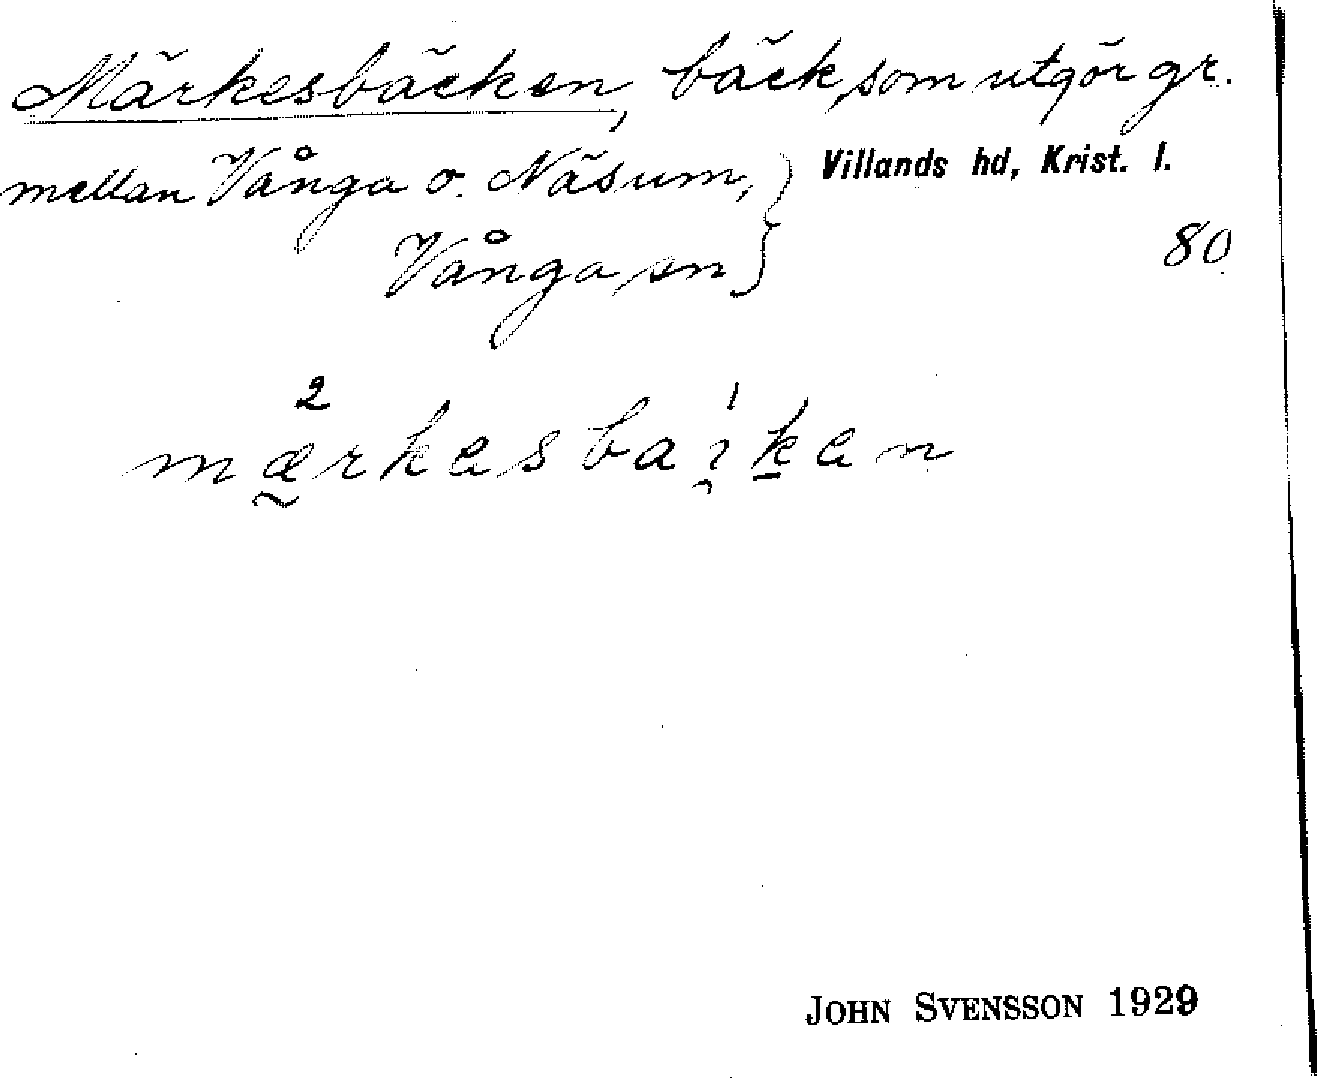 Märkesbäcken, bäck, som utgör gr.
mellan Vånga o. Näsum, } Villands hd, Krist. l.
Vånga sn } 80
2
mærkesbaiken
JOHN SVENSSON 1929